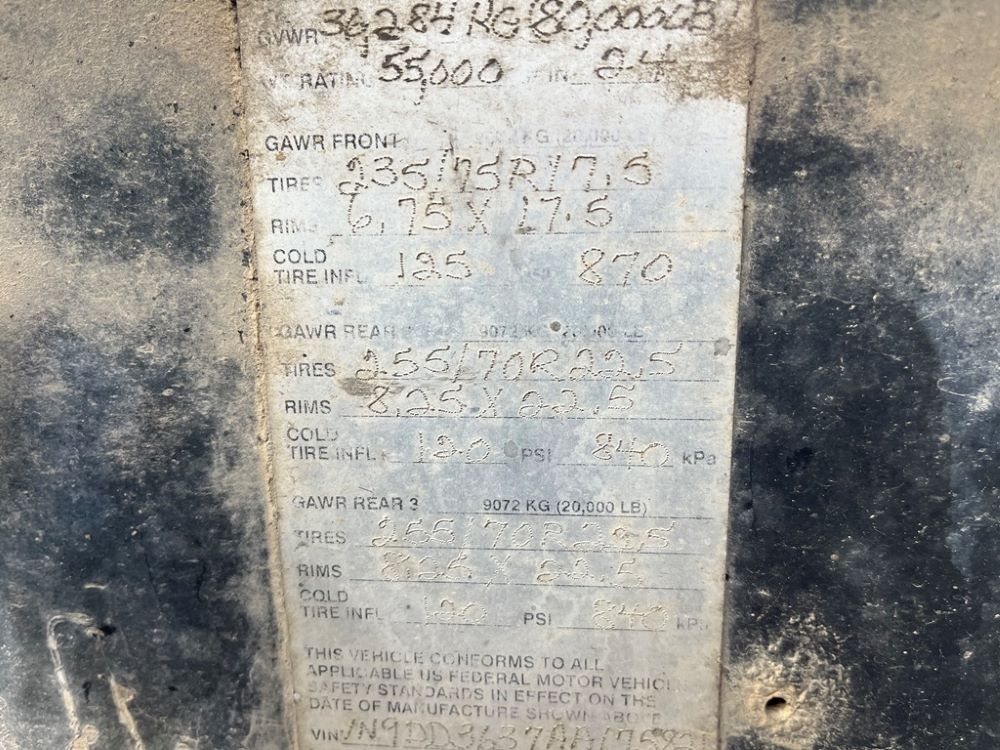 GVWR 36,284 KG (80,000 LB)
WT RATING 55,000 IN 24
GAWR FRONT 9072 KG (20,000 LB)
TIRES 235/75R17.5
RIMS 6.75 X 17.5
COLD
TIRE INFL 125 PSI 870
GAWR REAR 9072 KG (20,000 LB)
TIRES 255/70R22.5
RIMS 8.25 X 22.5
COLD
TIRE INFL 120 PSI 840 kPa
GAWR REAR 3 9072 KG (20,000 LB)
TIRES 255/70R22.5
RIMS 8.25 X 22.5
COLD
TIRE INFL 120 PSI 840 kPa
THIS VEHICLE CONFORMS TO ALL
APPLICABLE US FEDERAL MOTOR VEHICLE
SAFETY STANDARDS IN EFFECT ON THE
DATE OF MANUFACTURE SHOWN ABOVE
VIN